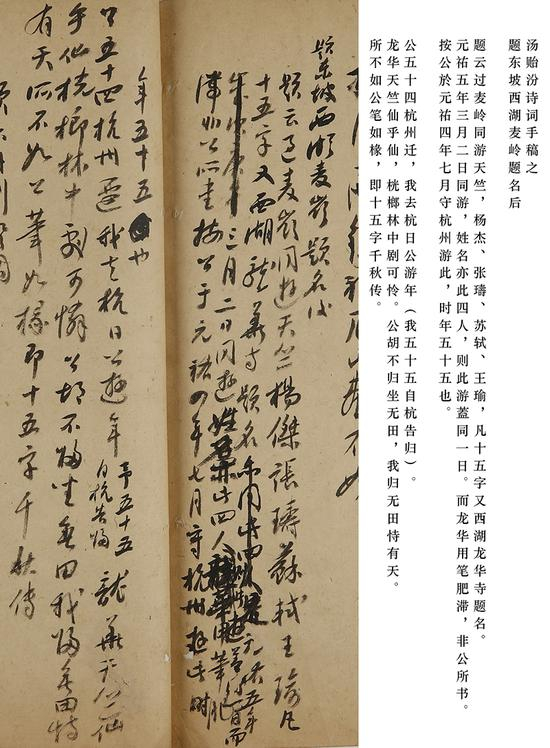 汤贻汾诗词手稿之
题东坡西湖麦岭题名后
题云过麦岭同游天竺，杨杰、张璹、苏轼、王瑜，凡十五字又西湖龙华寺题名。
元祐五年三月二日同游，姓名亦此四人，则此游蓋同一日。而龙华用笔肥滞，非公所书。
按公於元祐四年七月守杭州游此，时年五十五也。
公五十四杭州迁，我去杭日公游年（我五十五自杭告归）。
龙华天竺仙乎仙，桄榔林中剧可怜。公胡不归坐无田，我归无田恃有天。
所不如公笔如椽，即十五字千秋传。
題東坡西湖麥嶺題名後
題云過麥嶺同遊天竺楊傑張璹蘇軾王瑜凡
十五字又西湖龍華寺題名元祐五年
三月二日同遊姓名亦此四人而
滯非公所書按公于元祐四年七月守杭州遊此時
年五十五也
公五十四杭州遷我去杭日公遊年 予五十五自杭告歸 龍華天竺仙
乎仙桄榔林中劇可憐公胡不歸坐無田我歸無田恃
有天所不如公筆如椽即十五字千秋傳